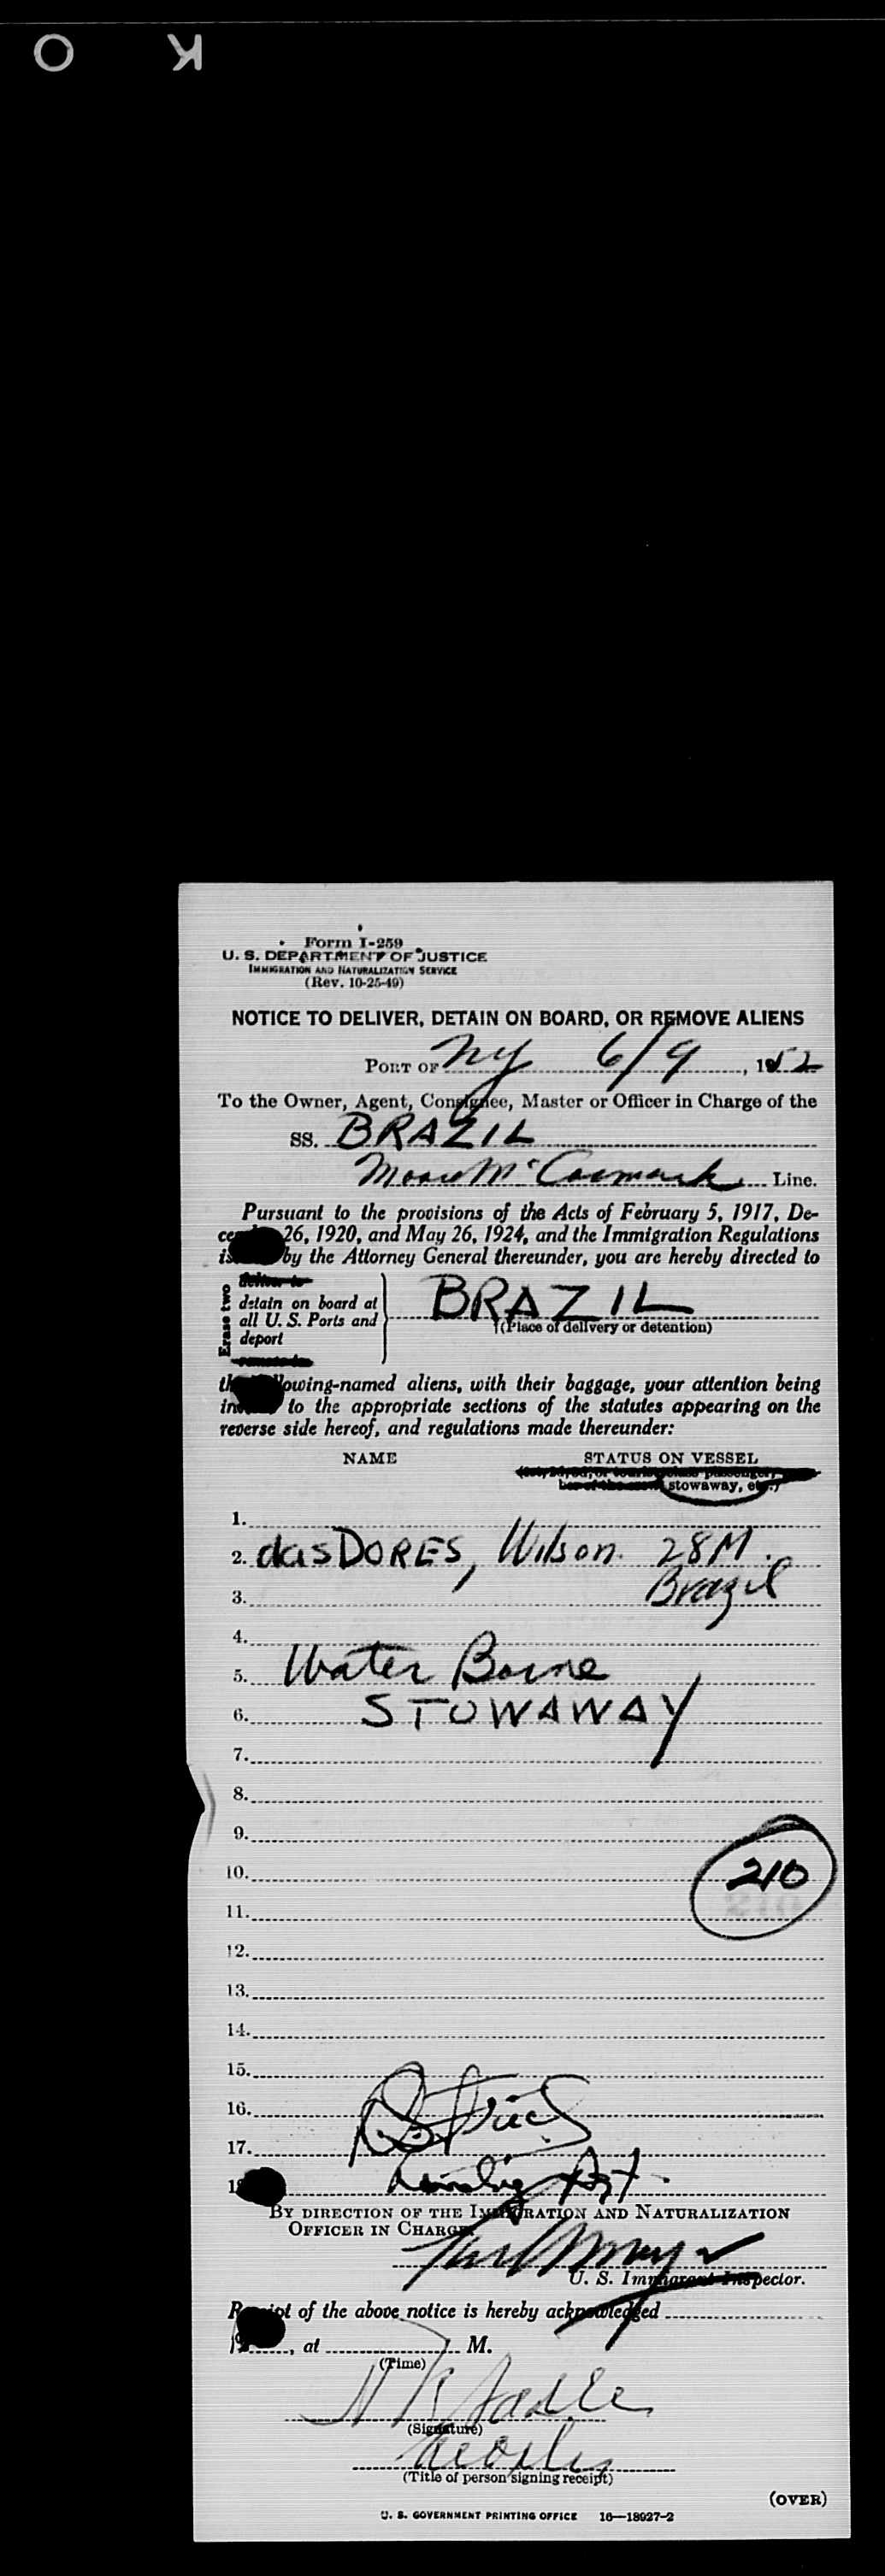 O K
Form I-259
U. S. DEPARTMENT OF JUSTICE
IMMIGRATION AND NATURALIZATION SERVICE
(Rev. 10-25-49)
NOTICE TO DELIVER, DETAIN ON BOARD, OR REMOVE ALIENS
PORT OF NY 6/9, 1952
To the Owner, Agent, Consignee, Master or Officer in Charge of the
SS. BRAZIL
Moore McCormack Line.
Pursuant to the provisions of the Acts of February 5, 1917, De-
26, 1920, and May 26, 1924, and the Immigration Regulations
by the Attorney General thereunder, you are hereby directed to
Erase two
deliver to
detain on board at
all U. S. Ports and
deport
remove to
BRAZIL
(Place of delivery or detention)
following-named aliens, with their baggage, your attention being
to the appropriate sections of the statutes appearing on the
reverse side hereof, and regulations made thereunder:
NAME STATUS ON VESSEL
stowaway, etc.)
1.
2. das DORES, Wilson 28M.
3. Brazil
4.
5. Water Borne
6. STOWAWAY
7.
8.
9.
10. 210
11.
12.
13.
14.
15.
16.
17.
BY DIRECTION OF THE IMMIGRATION AND NATURALIZATION
OFFICER IN CHARGE
U. S. Immigrant Inspector.
Receipt of the above notice is hereby acknowledged
, at M.
(Time)
(Signature)
(Title of person signing receipt)
(OVER)
U. S. GOVERNMENT PRINTING OFFICE 16—18927-2